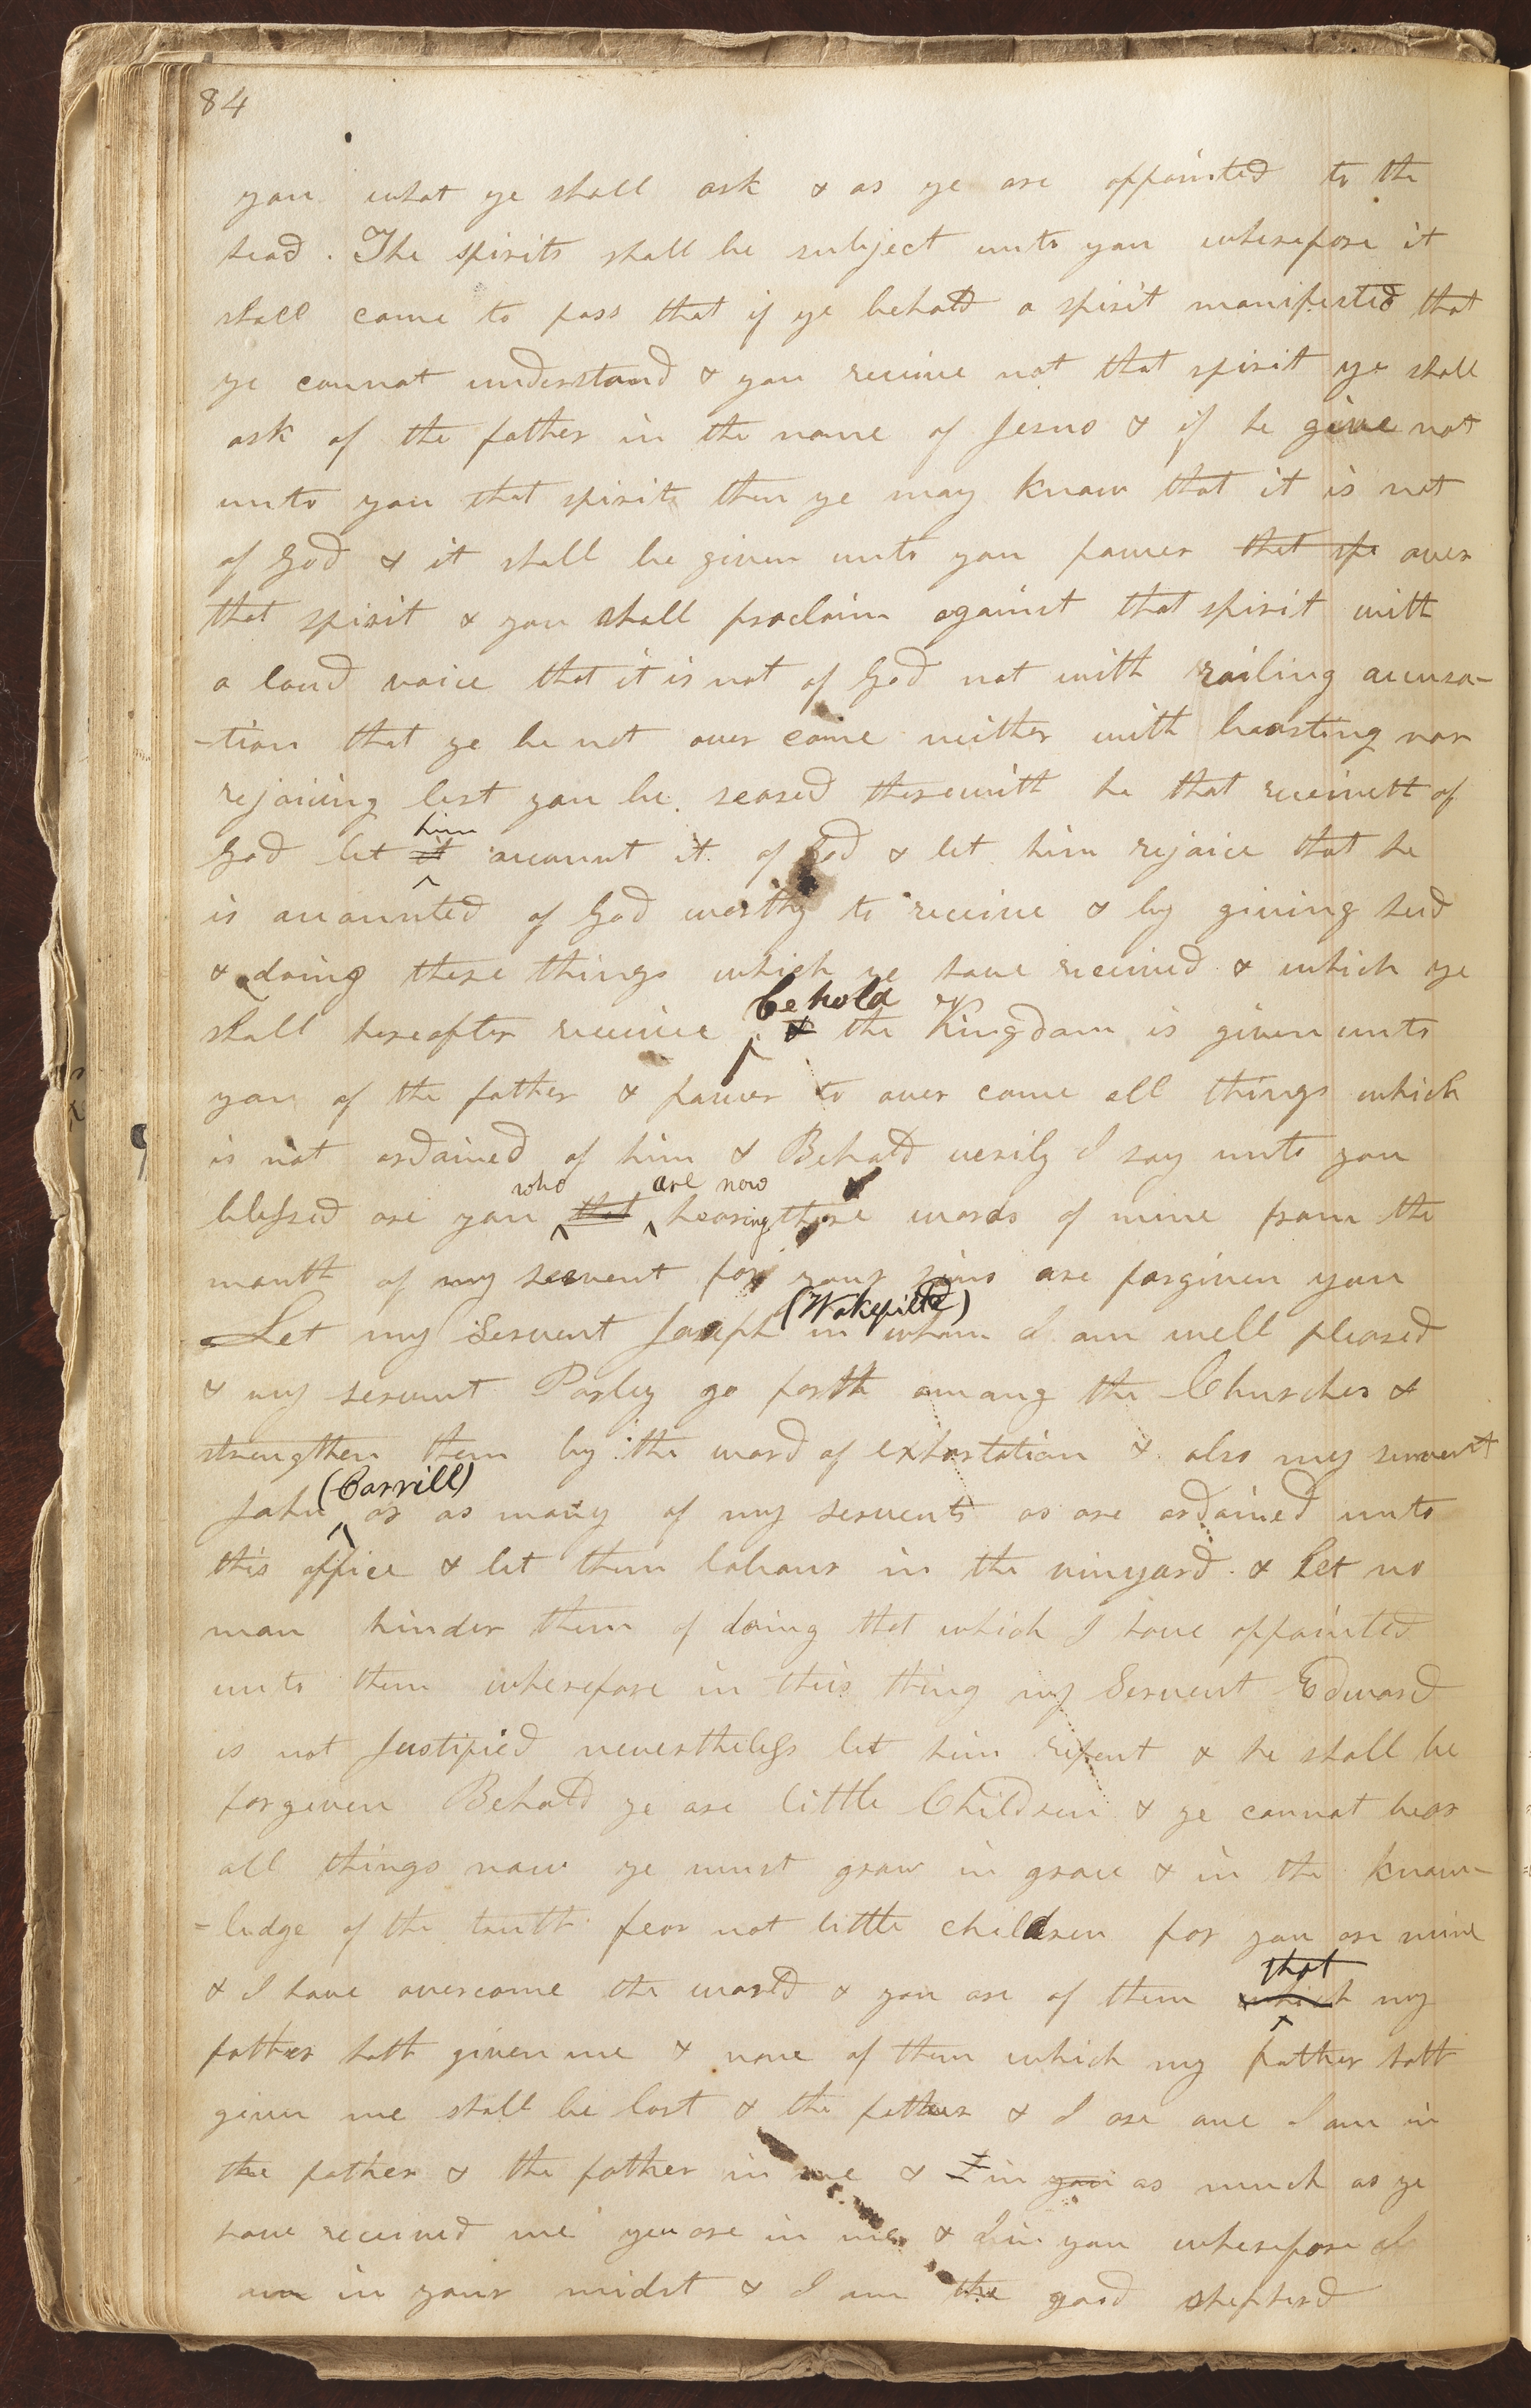 84
you what ye shall ask & as ye are appointed to the
head. The spirits shall be subject unto you wherefore it
shall come to pass that if ye behold a spirit manifested that
ye cannot understand & you receive not that spirit ye shall
ask of the father in the name of Jesus & if he give not
unto you that spirit then ye may know that it is not
of God & it shall be given unto you power that spi over
that spirit & you shall proclaim against that spirit with
a loud voice that it is not of God not with railing accusa-
-tion that ye be not over come neither with boasting nor
rejoicing lest you be seased therewith he that receiveth of
him
God let it account it of God & let him rejoice that he
is accounted of God worthy to receive & by giving heed
& doing these things which ye have received & which ye
behold
shall hereafter receive & the Kingdom is given unto
you of the father & power to over come all things which
is not ordained of him & Behold verily I say unto you
who are now
blessed are you that hearing these words of mine from the
mouth of my servent for your sins are forgiven you
(Wakefield)
Let my Servent Joseph in whom I am well pleased
& my servent Parley go forth among the Churches &
strengthen them by the word of exhortation & also my servent
(Carrill)
John or as many of my servents as are ordained unto
this office & let them labour in the vinyard. & Let no
man hinder them of doing that which I have appointed
unto them wherefore in this thing my Servent Edward
is not Justified nevertheless let him repent & he shall be
forgeven Behold ye are little Children & ye cannot bear
all things now ye must grow in grace & in the know-
-ledge of the truth fear not little children for you are mine
that
& I have overcome the world & you are of them which my
father hath given me & none of them which my father hath
given me shall be lost & the father & I are one I am in
the father & the father in me & I in you as much as ye
have received me you are in me & I in you wherefore I
am in your midst & I am the good shepherd